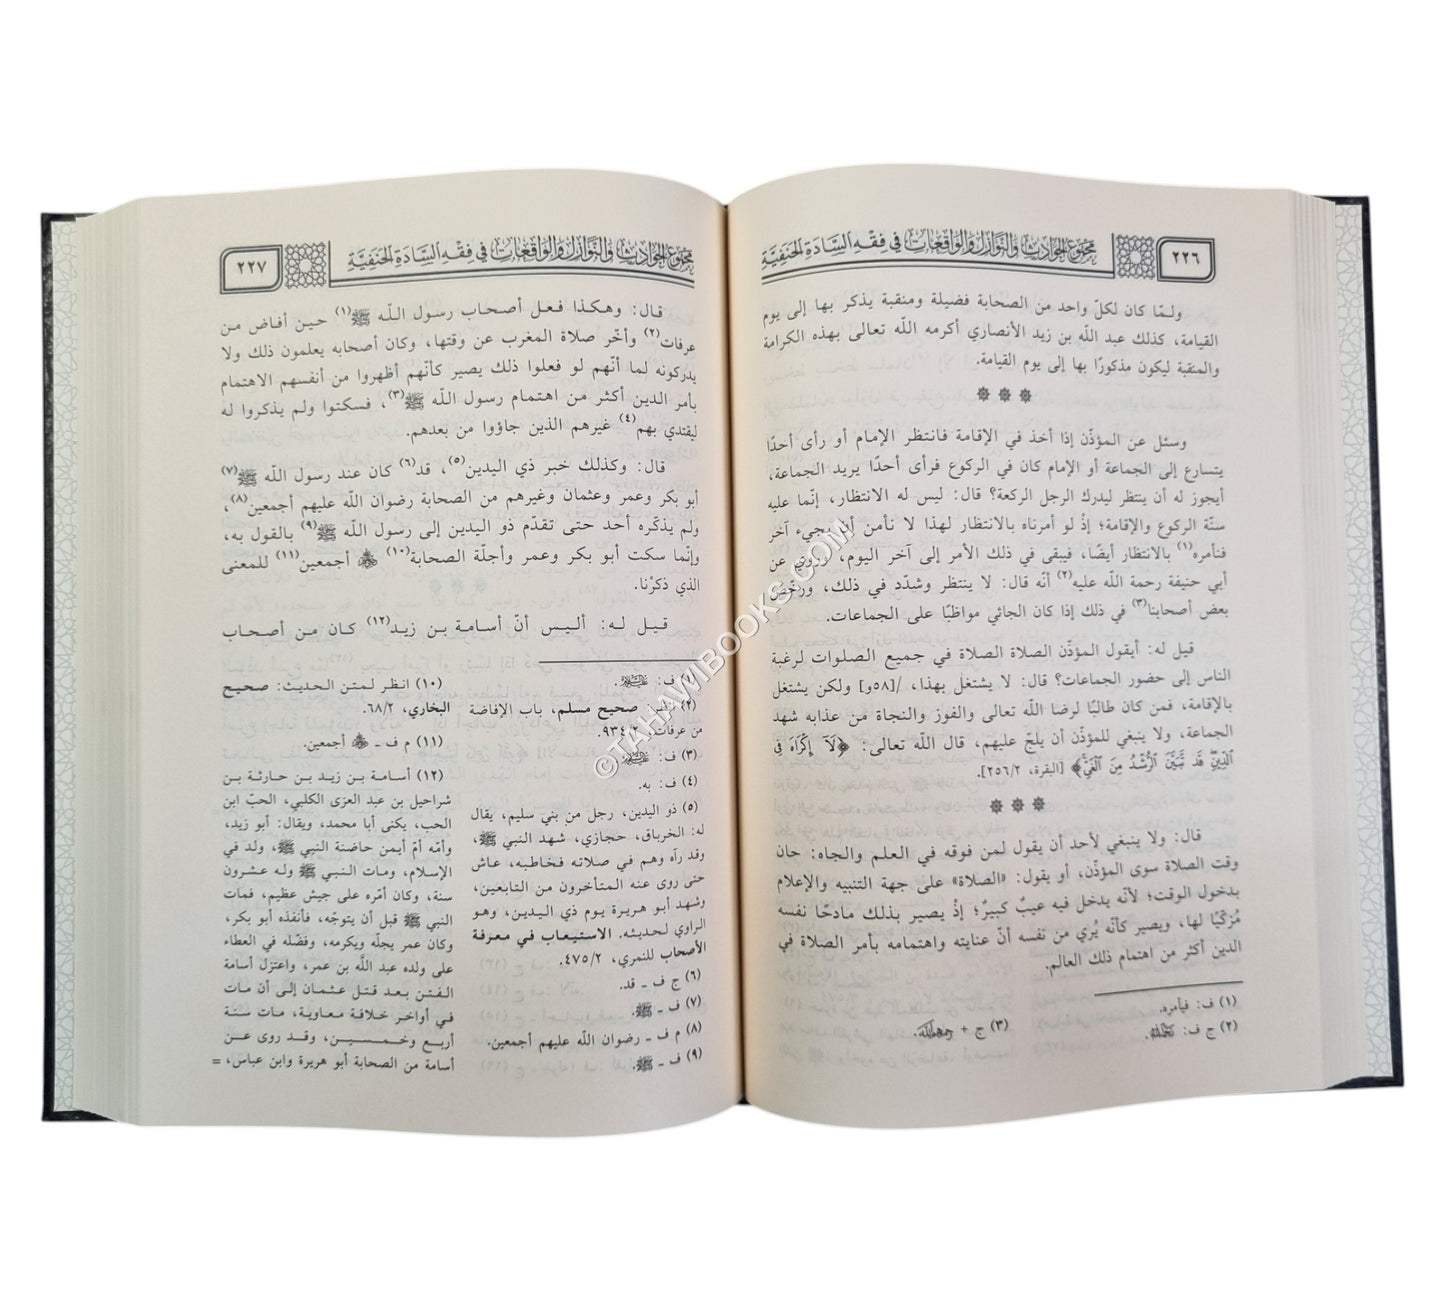 ٢٢٦
مجموع الحوادث والنوازل والواقعات في فقه السادة الحنفية
ولمّا كان لكلّ واحد من الصحابة فضيلة ومنقبة يذكر بها إلى يوم
القيامة، كذلك عبد الله بن زيد الأنصاري أكرمه الله تعالى بهذه الكرامة
والمنقبة ليكون مذكورًا بها إلى يوم القيامة.
وسئل عن المؤذّن إذا أخذ في الإقامة فانتظر الإمام أو رأى أحدًا
يتسارع إلى الجماعة أو الإمام كان في الركوع فرأى أحدًا يريد الجماعة،
أيجوز له أن ينتظر ليدرك الرجل الركعة؟ قال: ليس له الانتظار، إنّما عليه
سنّة الركوع والإقامة؛ إذْ لو أمرناه بالانتظار لهذا لا نأمن أن يجيء آخر
فنأمره(١) بالانتظار أيضًا، فيبقى في ذلك الأمر إلى آخر اليوم، وروي عن
أبي حنيفة رحمة الله عليه(٢) أنه قال: لا ينتظر وشدّد في ذلك، ورخّص
بعض أصحابنا(٣) في ذلك إذا كان الجائي مواظبًا على الجماعات.
قيل له: أيقول المؤذّن الصلاة الصلاة في جميع الصلوات لرغبة
الناس إلى حضور الجماعات؟ قال: لا يشتغل بهذا، /[٥٨و] ولكن يشتغل
بالإقامة، فمن كان طالبًا لرضا الله تعالى والفوز والنجاة من عذابه شهد
الجماعة، ولا ينبغي للمؤذّن أن يلجّ عليهم، قال الله تعالى: ﴿لَآ إِكْرَاهَ فِى
ٱلدِّينِ قَد تَّبَيَّنَ ٱلرُّشْدُ مِنَ ٱلْغَىِّ﴾ [البقرة، ٢٥٦/٢].
قال: ولا ينبغي لأحد أن يقول لمن فوقه في العلم والجاه: حان
وقت الصلاة سوى المؤذّن، أو يقول: «الصلاة» على جهة التنبيه والإعلام
بدخول الوقت؛ لأنّه يدخل فيه عيبٌ كبيرٌ؛ إذْ يصير بذلك مادحًا نفسه
مُزكّيًا لها، ويصير كأنّه يُري من نفسه أنّ عنايته واهتمامه بأمر الصلاة في
الدين أكثر من اهتمام ذلك العالم.
(١) ف: فيأمره.
(٢) ج ف: رحمه الله.
(٣) ج + رحمهم الله.
٢٢٧
مجموع الحوادث والنوازل والواقعات في فقه السادة الحنفية
قال: وهكذا فعل أصحاب رسول الله ﷺ(١) حين أفاض من
عرفات(٢) وأخّر صلاة المغرب عن وقتها، وكان أصحابه يعلمون ذلك ولا
يدركونه لما أنّهم لو فعلوا ذلك يصير كأنّهم أظهروا من أنفسهم الاهتمام
بأمر الدين أكثر من اهتمام رسول الله ﷺ(٣)، فسكتوا ولم يذكروا له
ليقتدي بهم(٤) غيرهم الذين جاؤوا من بعدهم.
قال: وكذلك خبر ذي اليدين(٥)، قد(٦) كان عند رسول الله ﷺ(٧)
أبو بكر وعمر وعثمان وغيرهم من الصحابة رضوان الله عليهم أجمعين(٨)،
ولم يذكّره أحد حتى تقدّم ذو اليدين إلى رسول الله ﷺ(٩) بالقول به،
وإنّما سكت أبو بكر وعمر وأجلّة الصحابة(١٠) ﷺ أجمعين(١١) للمعنى
الذي ذكرْنا.
قيل له: أليس أنّ أسامة بن زيد(١٢) كان من أصحاب
(١) ف: عليه السلام.
(٢) انظر: صحيح مسلم، باب الإفاضة
من عرفات، ٩٣٤/٢.
(٣) ف: عليه السلام.
(٤) ف: به.
(٥) ذو اليدين، رجل من بني سليم، يقال
له: الخرباق، حجازي، شهد النبي ﷺ،
وقد رآه وهم في صلاته فخاطبه، عاش
حتى روى عنه المتأخرون من التابعين،
وشهد أبو هريرة يوم ذي اليدين، وهو
الراوي لحديثه. الاستيعاب في معرفة
الأصحاب للنمري، ٤٧٥/٢.
(٦) ج ف ـ قد.
(٧) ف ـ ﷺ.
(٨) م ف ـ رضوان الله عليهم أجمعين.
(٩) ف ـ ﷺ.
(١٠) انظر لمتن الحديث: صحيح
البخاري، ٦٨/٢.
(١١) م ف ـ أجمعين.
(١٢) أسامة بن زيد بن حارثة بن
شراحيل بن عبد العزى الكلبي، الحبّ ابن
الحب، يكنى أبا محمد، ويقال: أبو زيد،
وأمّه أمّ أيمن حاضنة النبي ﷺ، ولد في
الإسلام، ومات النبي ﷺ وله عشرون
سنة، وكان أمّره على جيش عظيم، فمات
النبي ﷺ قبل أن يتوجّه، فأنفذه أبو بكر،
وكان عمر يجلّه ويكرمه، وفضّله في العطاء
على ولده عبد الله بن عمر، واعتزل أسامة
الفتن بعد قتل عثمان إلى أن مات
في أواخر خلافة معاوية، مات سنة
أربع وخمسين، وقد روى عن
أسامة من الصحابة أبو هريرة وابن عباس، =
©TAHAWIBOOKS.COM